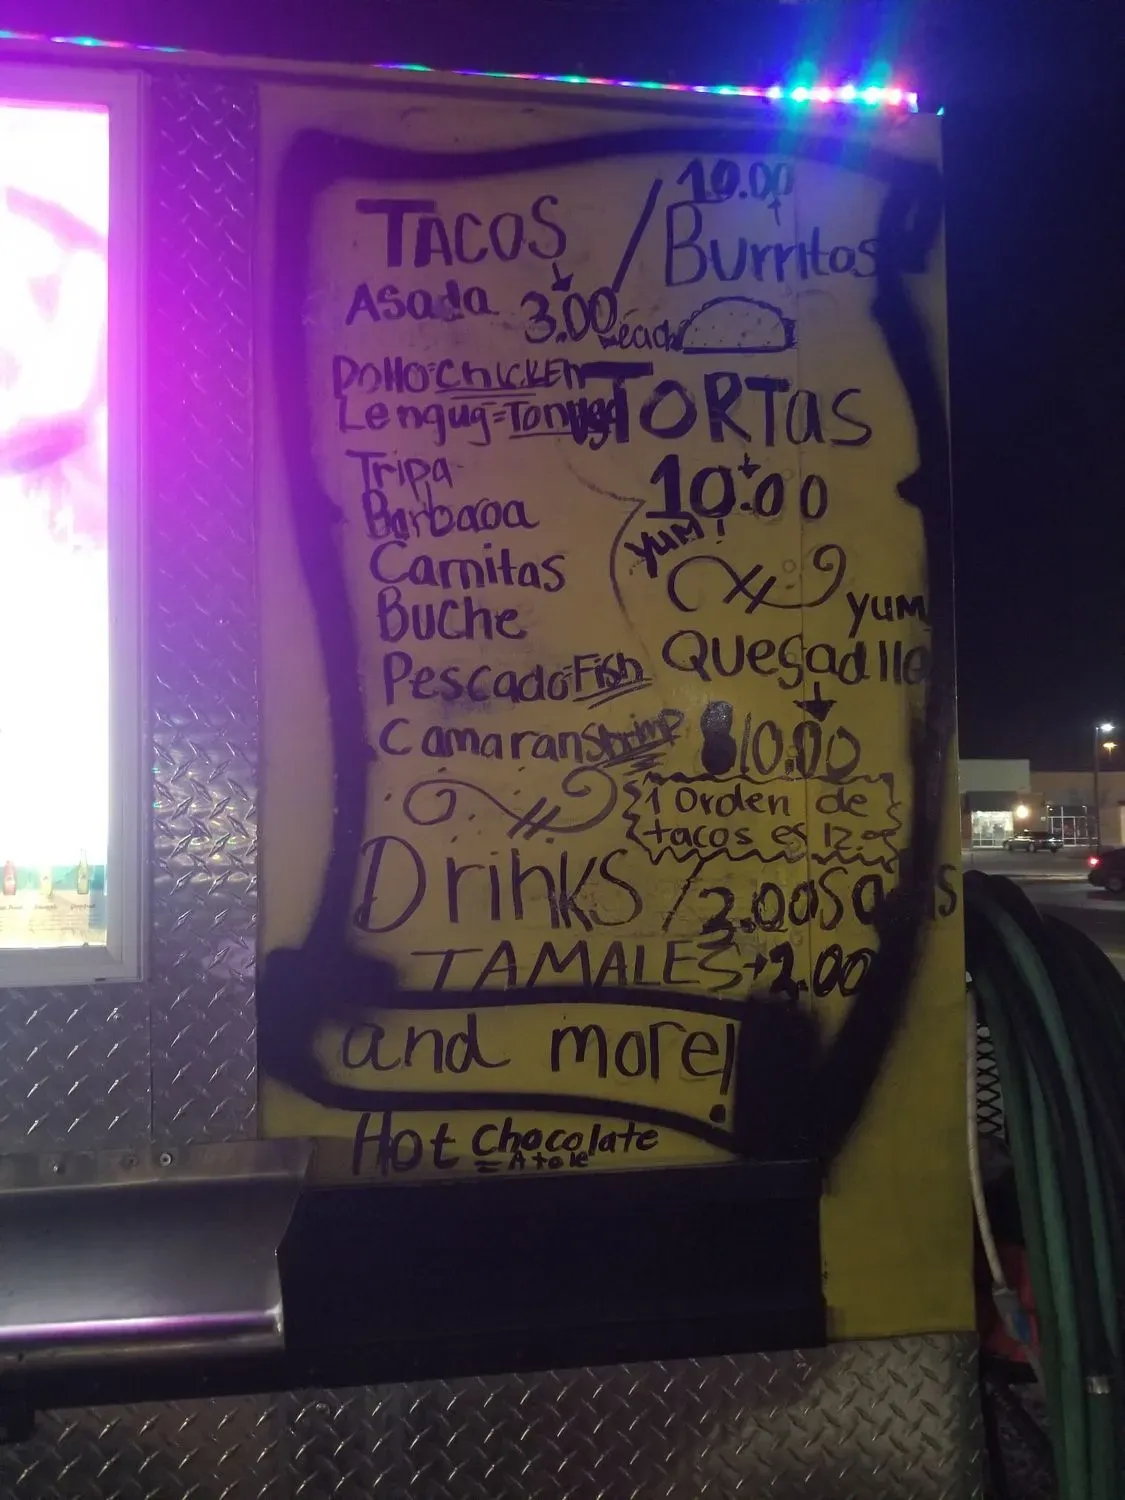 10.00
TACOS / Burritos
Asada 3.00 each
Pollo=Chicken TORTas
Lengug=Tonuga
10.00
Tripa
yum!
Barbaoa
Carnitas
yum
Buche
Quesadilla
Pescado=Fish
10.00
Camaran Shrimp
1 Orden de
tacos es 12.00
Drinks / 2.00
TAMALES 2.00
and more!
Hot Chocolate
=Atole